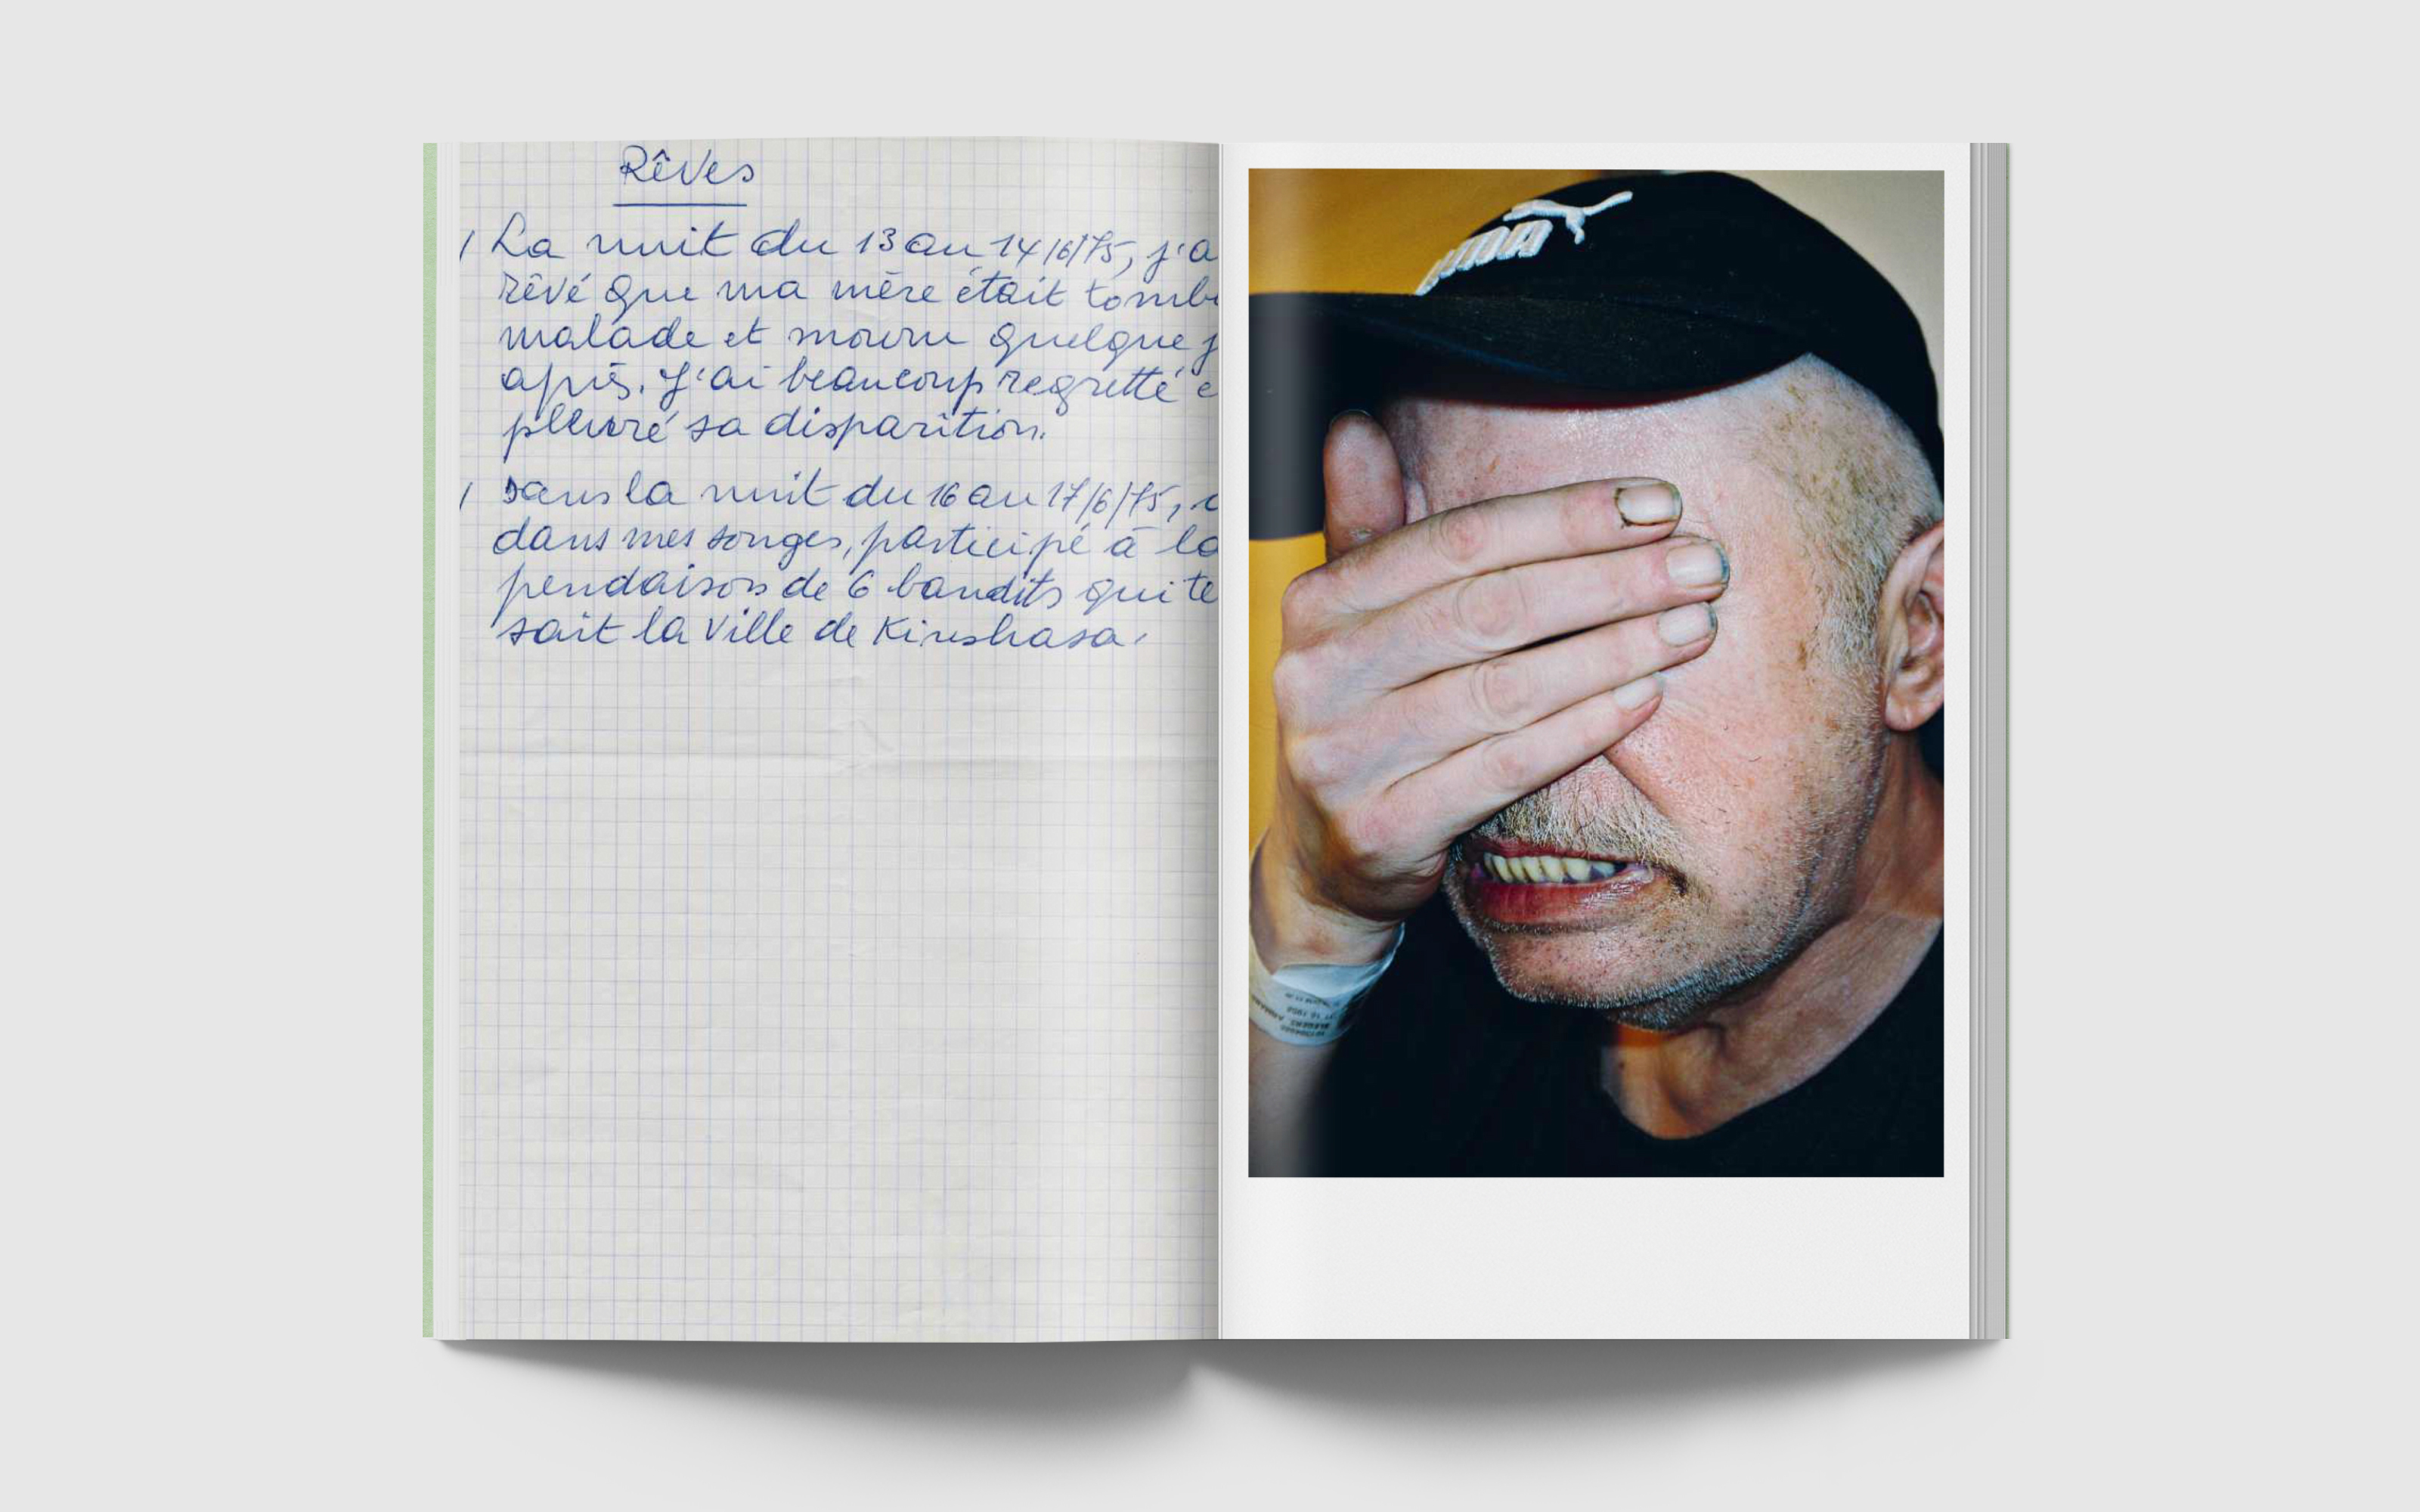 Rêves
/ La nuit du 13 au 14/6/75, j'a
rêvé que ma mère était tomb
malade et mouru quelque j
après. J'ai beaucoup regretté e
pleuré sa disparition.
/ Dans la nuit du 16 au 17/6/75,
dans mes songes, participé à la
pendaison de 6 bandits qui te
sait la ville de Kinshasa.
PUMA